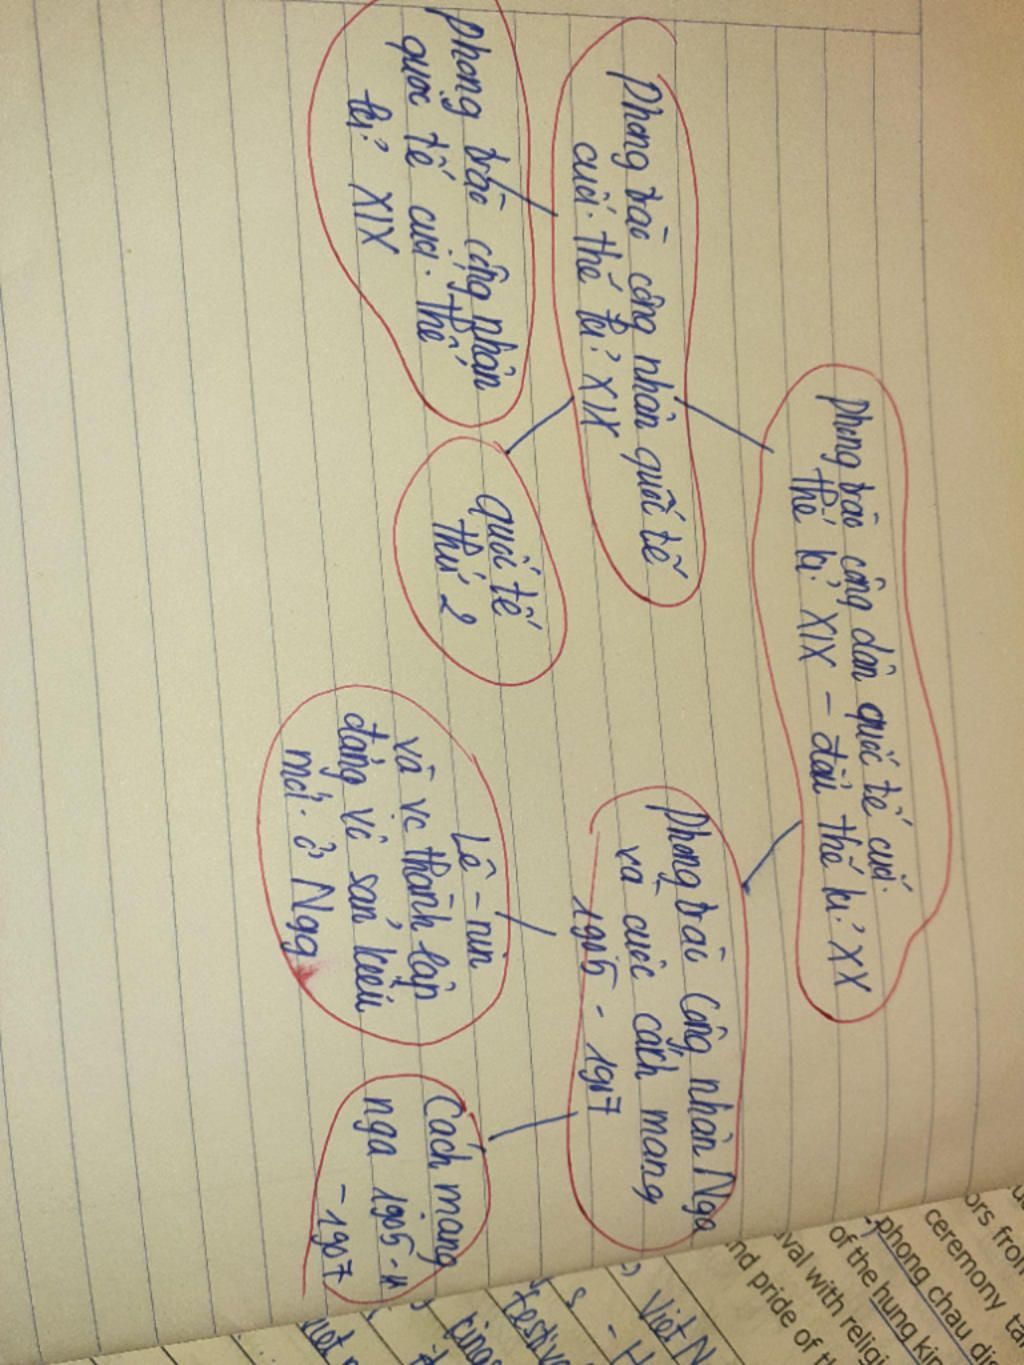 Phong trào công dân quốc tế cuối
thế kỉ XIX - đầu thế kỉ XX
Phong trào công nhân quốc tế
cuối thế kỉ XIX
Phong trào công nhân Nga
và cuộc cách mạng
1905 - 1907
Phong trào công nhân
quốc tế cuối thế
kỉ XIX
Quốc tế
thứ 2
Lê-nin
và vc thành lập
đảng vô sản kiểu
mới ở Nga
Cách mạng
nga 1905
- 1907
ors from
ceremony
phong chau
of the hung
with
nd pride of
Việt